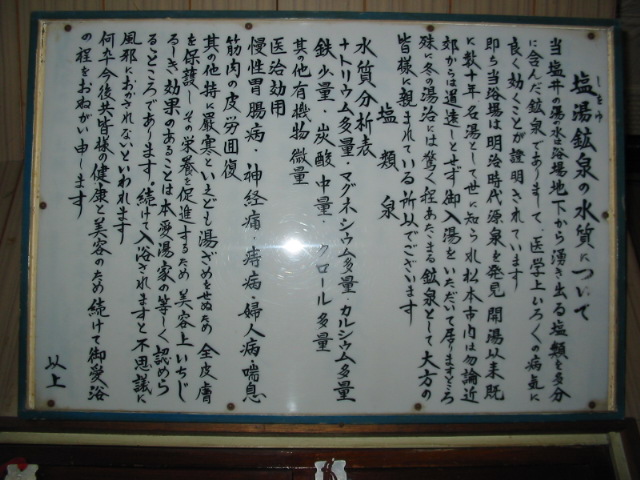 しおゆ
塩湯鉱泉の水質について
当塩井の湯の水は浴場地下から湧き出る塩類を多分
に含んだ鉱泉でありまして、医学上いろ〱の病気に
良く効くことが證明されています
即ち当浴場は明治時代源泉を発見 開湯以来既
に数十年名湯として世に知られ松本市内は勿論近
郊からは遠しとせず御入湯をいただいて居りますところ
殊に冬の湯治には驚く程あたたまる鉱泉として大方の
皆様に親まれている所以でございます
塩類泉
水質分析表
ナトリウム多量・マグネシウム多量・カルシウム多量
鉄少量・炭酸中量・クロール多量
其の他有機物微量
医治効用
慢性胃腸病・神経痛・痔病・婦人病・喘息
筋肉の疲労回復
其の他特に厳寒といえども湯ざめをせぬため 全皮膚
を保護しその栄養を促進するため 美容上いちじ
るしき効果のあることは本愛湯家の等しく認めら
るところであります 続けて入浴されますと不思議に
風邪におかされないといわれます
何卒今後共皆様の健康と美容のため続けて御愛浴
の程をおねがい申します
以上